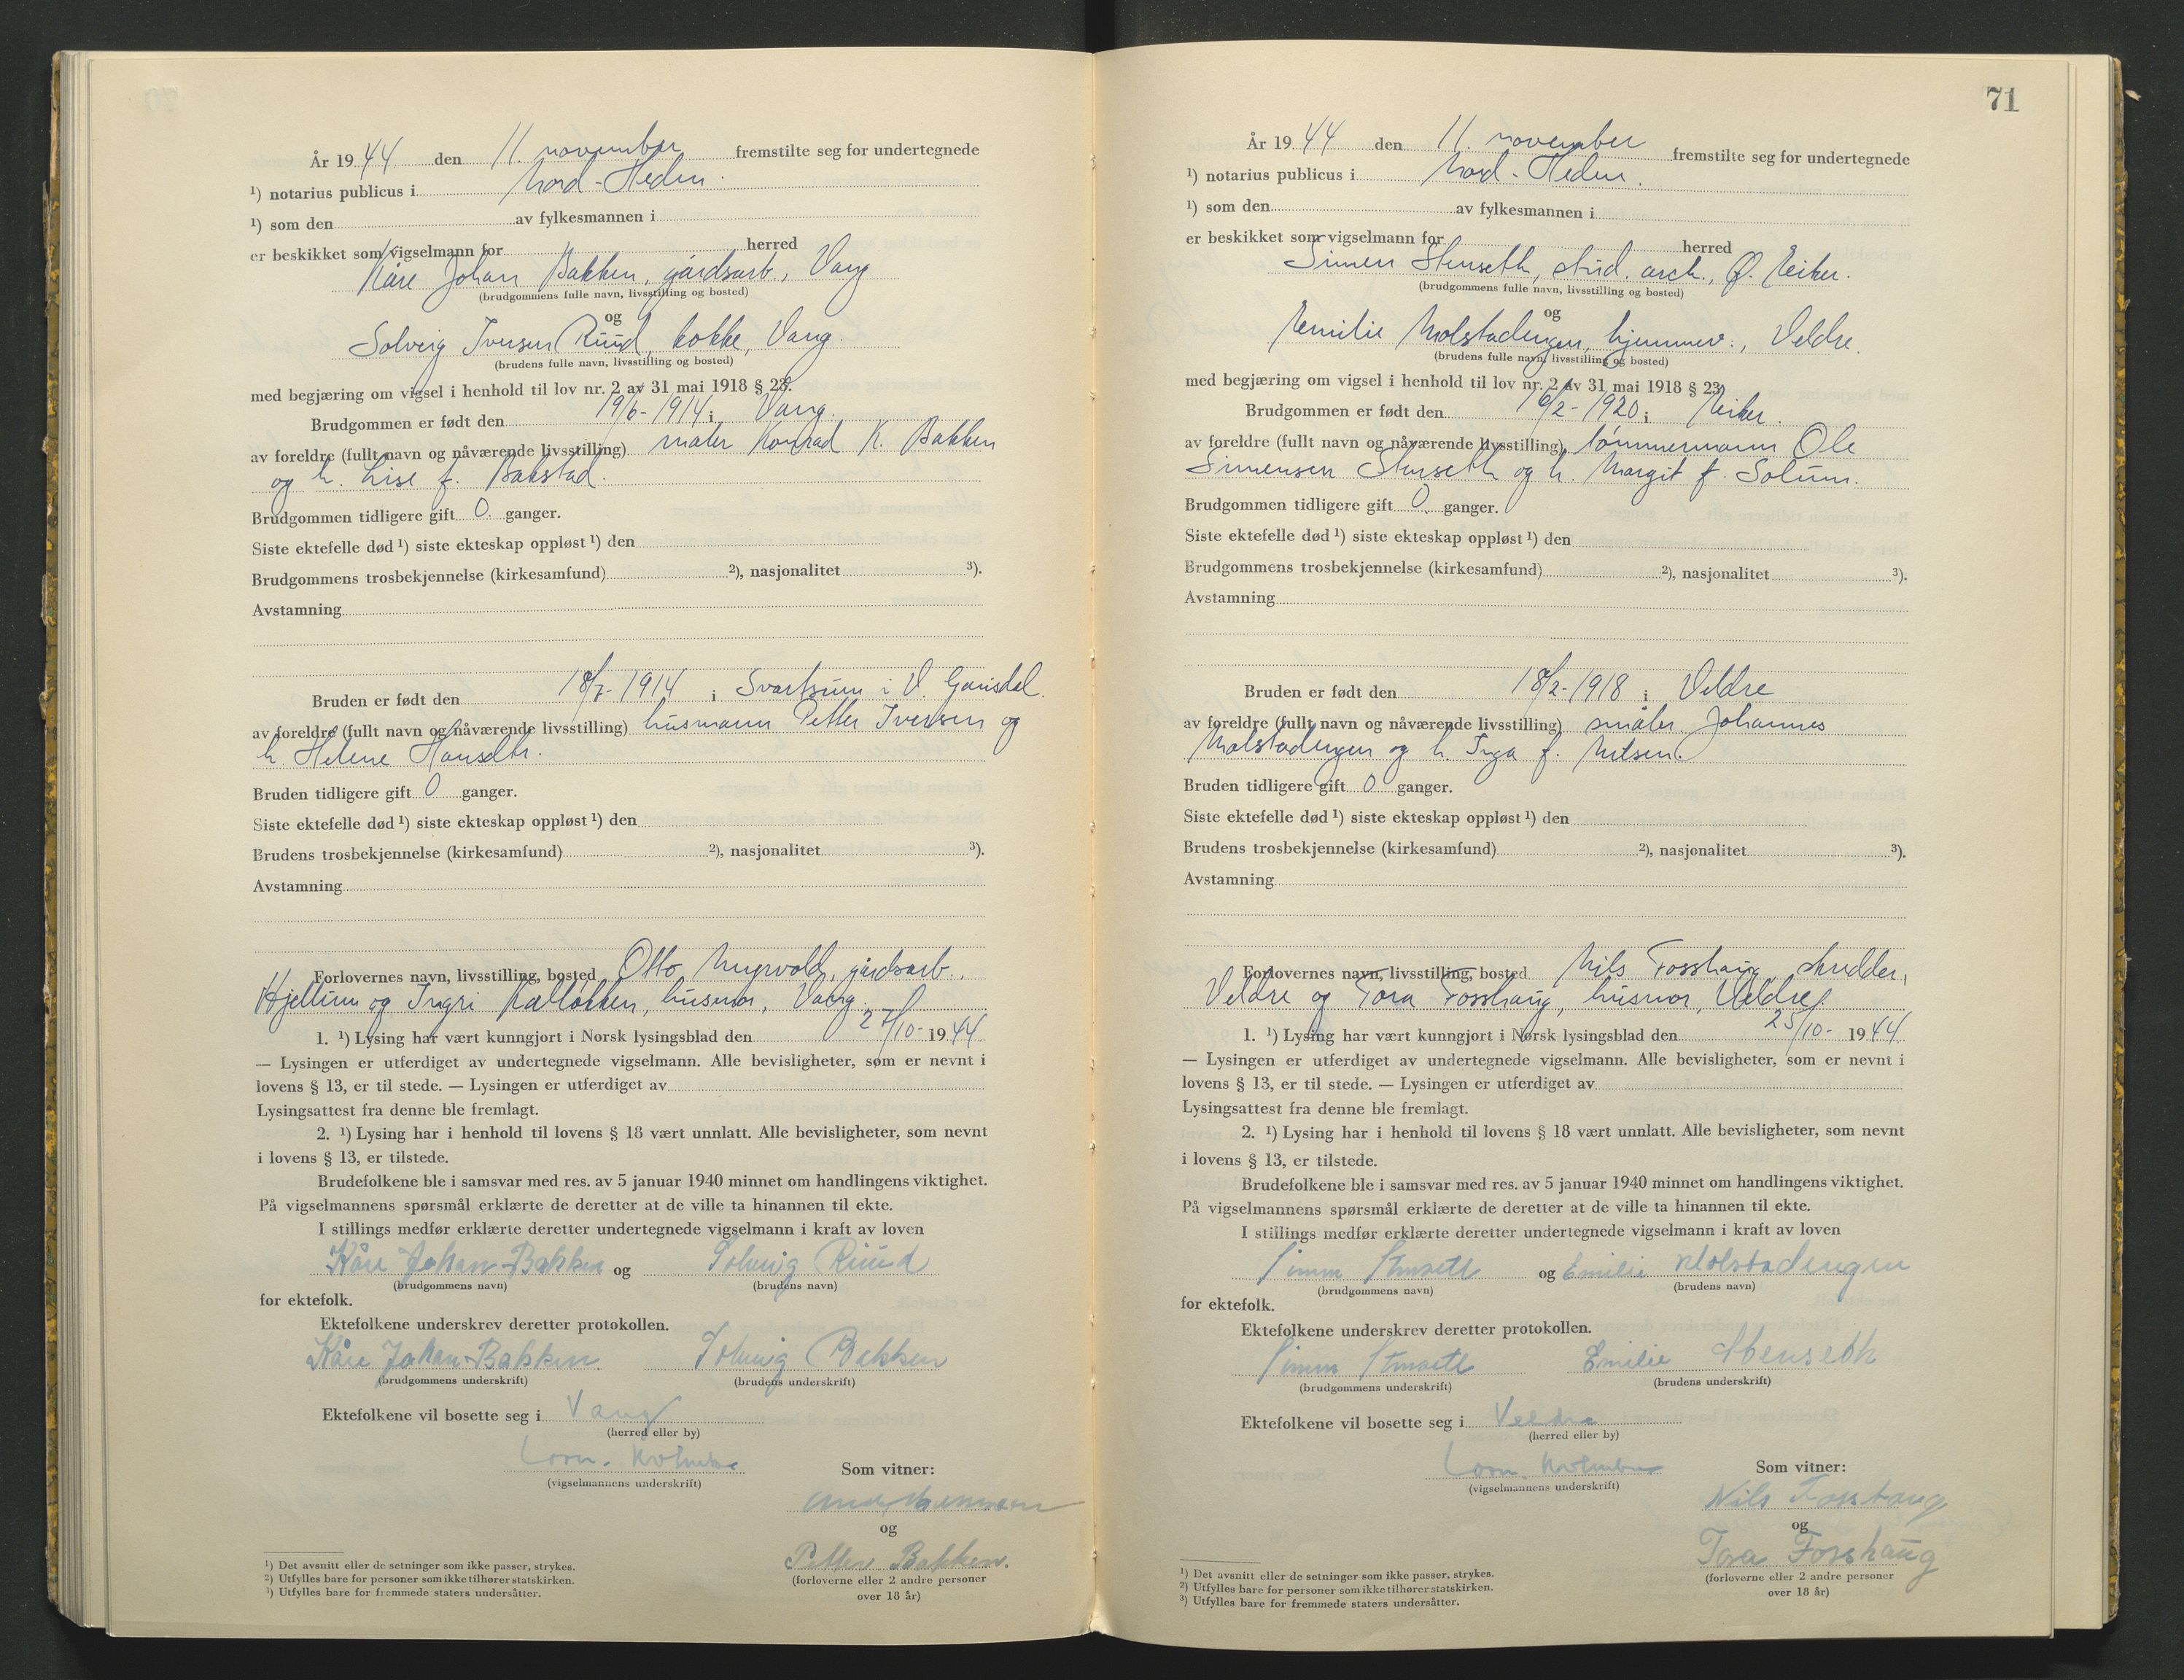 År 1944 den 11. november fremstilte seg for undertegnede
¹) notarius publicus i Nord-Hedm.
¹) som den av fylkesmannen i
er beskikket som vigselmann for herred
Kåre Johan Bakken, gårdsarb., Vang
(brudgommens fulle navn, livsstilling og bosted)
og
Solveig Iversen Ruud, kokke, Vang.
(brudens fulle navn, livsstilling og bosted)
med begjæring om vigsel i henhold til lov nr. 2 av 31 mai 1918 § 23.
Brudgommen er født den 19/6-1914 i Vang.
av foreldre (fullt navn og nåværende livsstilling) maler Konrad K. Bakken
og h. Lise f. Bakstad.
Brudgommen tidligere gift 0. ganger.
Siste ektefelle død ¹) siste ekteskap oppløst ¹) den
Brudgommens trosbekjennelse (kirkesamfund) ²), nasjonalitet ³).
Avstamning
Bruden er født den 18/7-1914 i Svartsum i V. Gausdal.
av foreldre (fullt navn og nåværende livsstilling) husmann Petter Iversen og
h. Helene Hansdtr.
Bruden tidligere gift 0 ganger.
Siste ektefelle død ¹) siste ekteskap oppløst ¹) den
Brudens trosbekjennelse (kirkesamfund) ²), nasjonalitet ³).
Avstamning
Forlovernes navn, livsstilling, bosted Otto Myrvold, gårdsarb.,
Hjellum og Ingri husmor, Vang.
1. ¹) Lysing har vært kunngjort i Norsk lysingsblad den 27/10-1944
— Lysingen er utferdiget av undertegnede vigselmann. Alle bevisligheter, som er nevnt i
lovens § 13, er til stede. — Lysingen er utferdiget av
Lysingsattest fra denne ble fremlagt.
2. ¹) Lysing har i henhold til lovens § 18 vært unnlatt. Alle bevisligheter, som nevnt
i lovens § 13, er tilstede.
Brudefolkene ble i samsvar med res. av 5 januar 1940 minnet om handlingens viktighet.
På vigselmannens spørsmål erklærte de deretter at de ville ta hinannen til ekte.
I stillings medfør erklærte deretter undertegnede vigselmann i kraft av loven
Kåre Johan Bakken og Solveig Ruud
(brudgommens navn) (brudens navn)
for ektefolk.
Ektefolkene underskrev deretter protokollen.
Kåre Johan Bakken Solveig Bakken
(brudgommens underskrift) (brudens underskrift)
Ektefolkene vil bosette seg i Vang
(herred eller by)
Som vitner:
(vigselmannens underskrift)
og
Petter Bakken.
(forloverne eller 2 andre personer
over 18 år)
¹) Det avsnitt eller de setninger som ikke passer, strykes.
²) Utfylles bare for personer som ikke tilhører statskirken.
³) Utfylles bare for fremmede staters undersåtter.
71
År 1944 den 11. november fremstilte seg for undertegnede
¹) notarius publicus i Nord-Hedm.
¹) som den av fylkesmannen i
er beskikket som vigselmann for herred
Simen Stenseth, stud. arch., Ø. Eiker.
(brudgommens fulle navn, livsstilling og bosted)
og
Emilie Molstadengen, hjemmev., Veldre.
(brudens fulle navn, livsstilling og bosted)
med begjæring om vigsel i henhold til lov nr. 2 av 31 mai 1918 § 23.
Brudgommen er født den 16/2-1920 i Eiker.
av foreldre (fullt navn og nåværende livsstilling) tømmermann Ole
Simensen Stenseth og h. Margit f. Solum.
Brudgommen tidligere gift 0. ganger.
Siste ektefelle død ¹) siste ekteskap oppløst ¹) den
Brudgommens trosbekjennelse (kirkesamfund) ²), nasjonalitet ³).
Avstamning
Bruden er født den 18/2-1918 i Veldre
av foreldre (fullt navn og nåværende livsstilling) småbr. Johannes
Molstadengen og h. Inga f. Nilsen.
Bruden tidligere gift 0 ganger.
Siste ektefelle død ¹) siste ekteskap oppløst ¹) den
Brudens trosbekjennelse (kirkesamfund) ²), nasjonalitet ³).
Avstamning
Forlovernes navn, livsstilling, bosted Nils Fosshaug, skredder,
Veldre og Tora Fosshaug, husmor, Veldre.
1. ¹) Lysing har vært kunngjort i Norsk lysingsblad den 25/10-1944
— Lysingen er utferdiget av undertegnede vigselmann. Alle bevisligheter, som er nevnt i
lovens § 13, er til stede. — Lysingen er utferdiget av
Lysingsattest fra denne ble fremlagt.
2. ¹) Lysing har i henhold til lovens § 18 vært unnlatt. Alle bevisligheter, som nevnt
i lovens § 13, er tilstede.
Brudefolkene ble i samsvar med res. av 5 januar 1940 minnet om handlingens viktighet.
På vigselmannens spørsmål erklærte de deretter at de ville ta hinannen til ekte.
I stillings medfør erklærte deretter undertegnede vigselmann i kraft av loven
Simen Stenseth og Emilie Molstadengen
(brudgommens navn) (brudens navn)
for ektefolk.
Ektefolkene underskrev deretter protokollen.
Simen Stenseth Emilie Stenseth
(brudgommens underskrift) (brudens underskrift)
Ektefolkene vil bosette seg i Veldre
(herred eller by)
Som vitner:
(vigselmannens underskrift)
Nils Fosshaug
og
Tora Fosshaug
(forloverne eller 2 andre personer
over 18 år)
¹) Det avsnitt eller de setninger som ikke passer, strykes.
²) Utfylles bare for personer som ikke tilhører statskirken.
³) Utfylles bare for fremmede staters undersåtter.